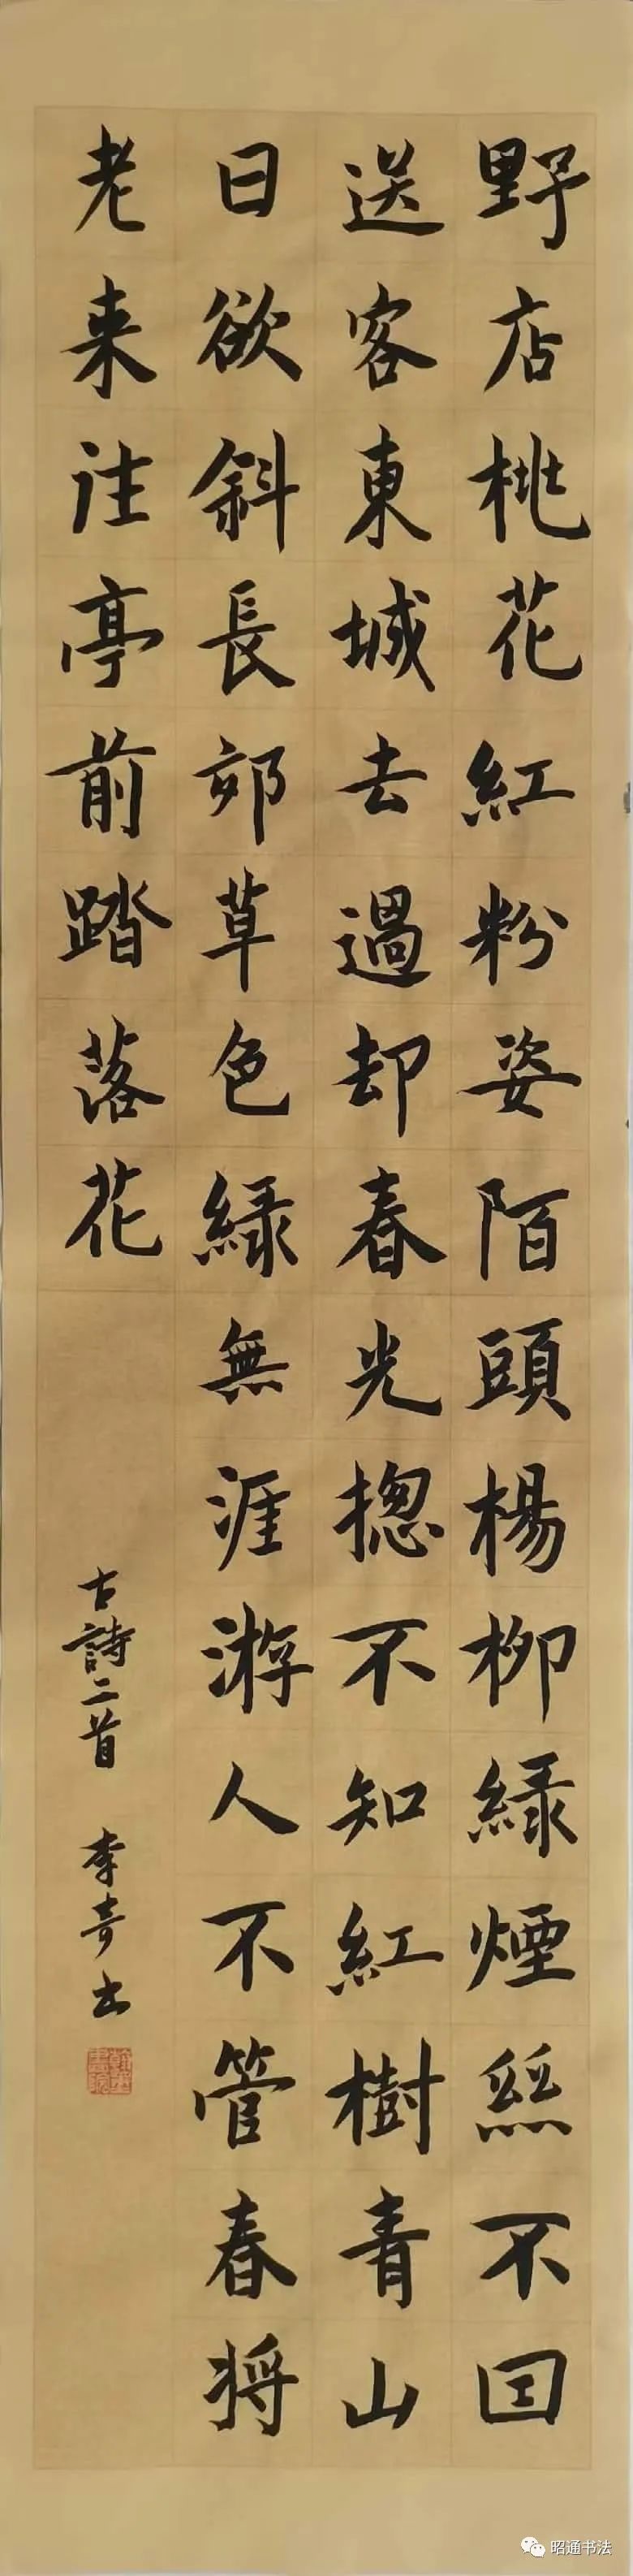 野店桃花紅粉姿陌頭楊柳緑煙絲不因
送客東城去過却春光揔不知紅樹青山
日欲斜長郊草色緑無涯游人不管春将
老来往亭前踏落花
古詩二首 李奇书
昭通书法